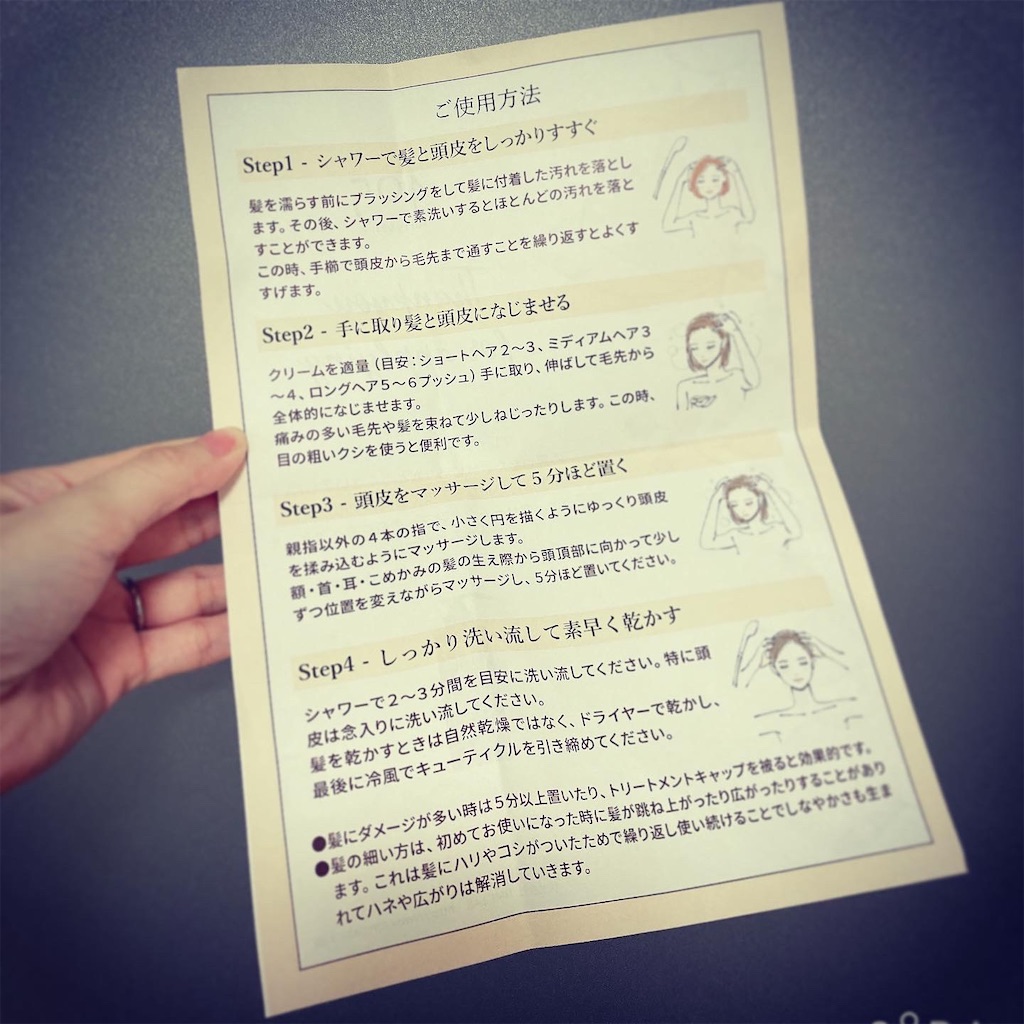 ご使用方法
Step1 - シャワーで髪と頭皮をしっかりすすぐ
髪を濡らす前にブラッシングをして髪に付着した汚れを落とし
ます。その後、シャワーで素洗いするとほとんどの汚れを落と
すことができます。
この時、手櫛で頭皮から毛先まで通すことを繰り返すとよくす
すげます。
Step2 - 手に取り髪と頭皮になじませる
クリームを適量（目安：ショートヘア２〜３、ミディアムヘア３
〜４、ロングヘア５〜６プッシュ）手に取り、伸ばして毛先から
全体的になじませます。
痛みの多い毛先や髪を束ねて少しねじったりします。この時、
目の粗いクシを使うと便利です。
Step3 - 頭皮をマッサージして５分ほど置く
親指以外の４本の指で、小さく円を描くようにゆっくり頭皮
を揉み込むようにマッサージします。
額・首・耳・こめかみの髪の生え際から頭頂部に向かって少し
ずつ位置を変えながらマッサージし、５分ほど置いてください。
Step4 - しっかり洗い流して素早く乾かす
シャワーで２〜３分間を目安に洗い流してください。特に頭
皮は念入りに洗い流してください。
髪を乾かすときは自然乾燥ではなく、ドライヤーで乾かし、
最後に冷風でキューティクルを引き締めてください。
●髪にダメージが多い時は５分以上置いたり、トリートメントキャップを被ると効果的です。
●髪の細い方は、初めてお使いになった時に髪が跳ね上がったり広がったりすることがあり
ます。これは髪にハリやコシがついたためで繰り返し使い続けることでしなやかさも生ま
れてハネや広がりは解消していきます。